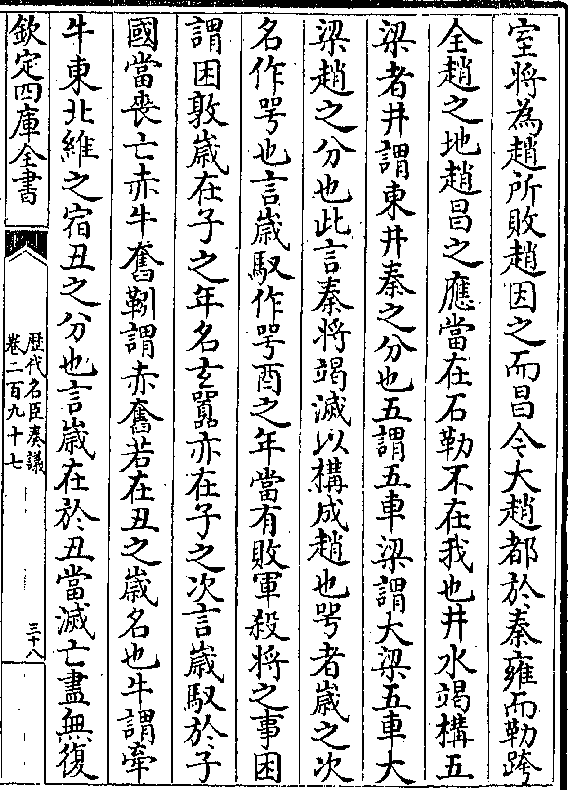 室將為趙所敗趙因之而昌今大趙都於秦雍而勒跨
全趙之地趙昌之應當在石勒不在我也井水竭構五
梁者井謂東井秦之分也五謂五車梁謂大梁五車大
梁趙之分也此言秦將竭滅以構成趙也咢者嵗之次
名作咢也言嵗馭作咢酉之年當有敗軍殺將之事困
謂困敦嵗在子之年名玄嚚亦在子之次言嵗馭於子
國當喪亡赤牛奮靷謂赤奮若在丑之嵗名也牛謂牽
牛東北維之宿丑之分也言嵗在於丑當滅亡盡無復
欽定四庫全書
歴代名臣奏議
卷二百九十七
三十八